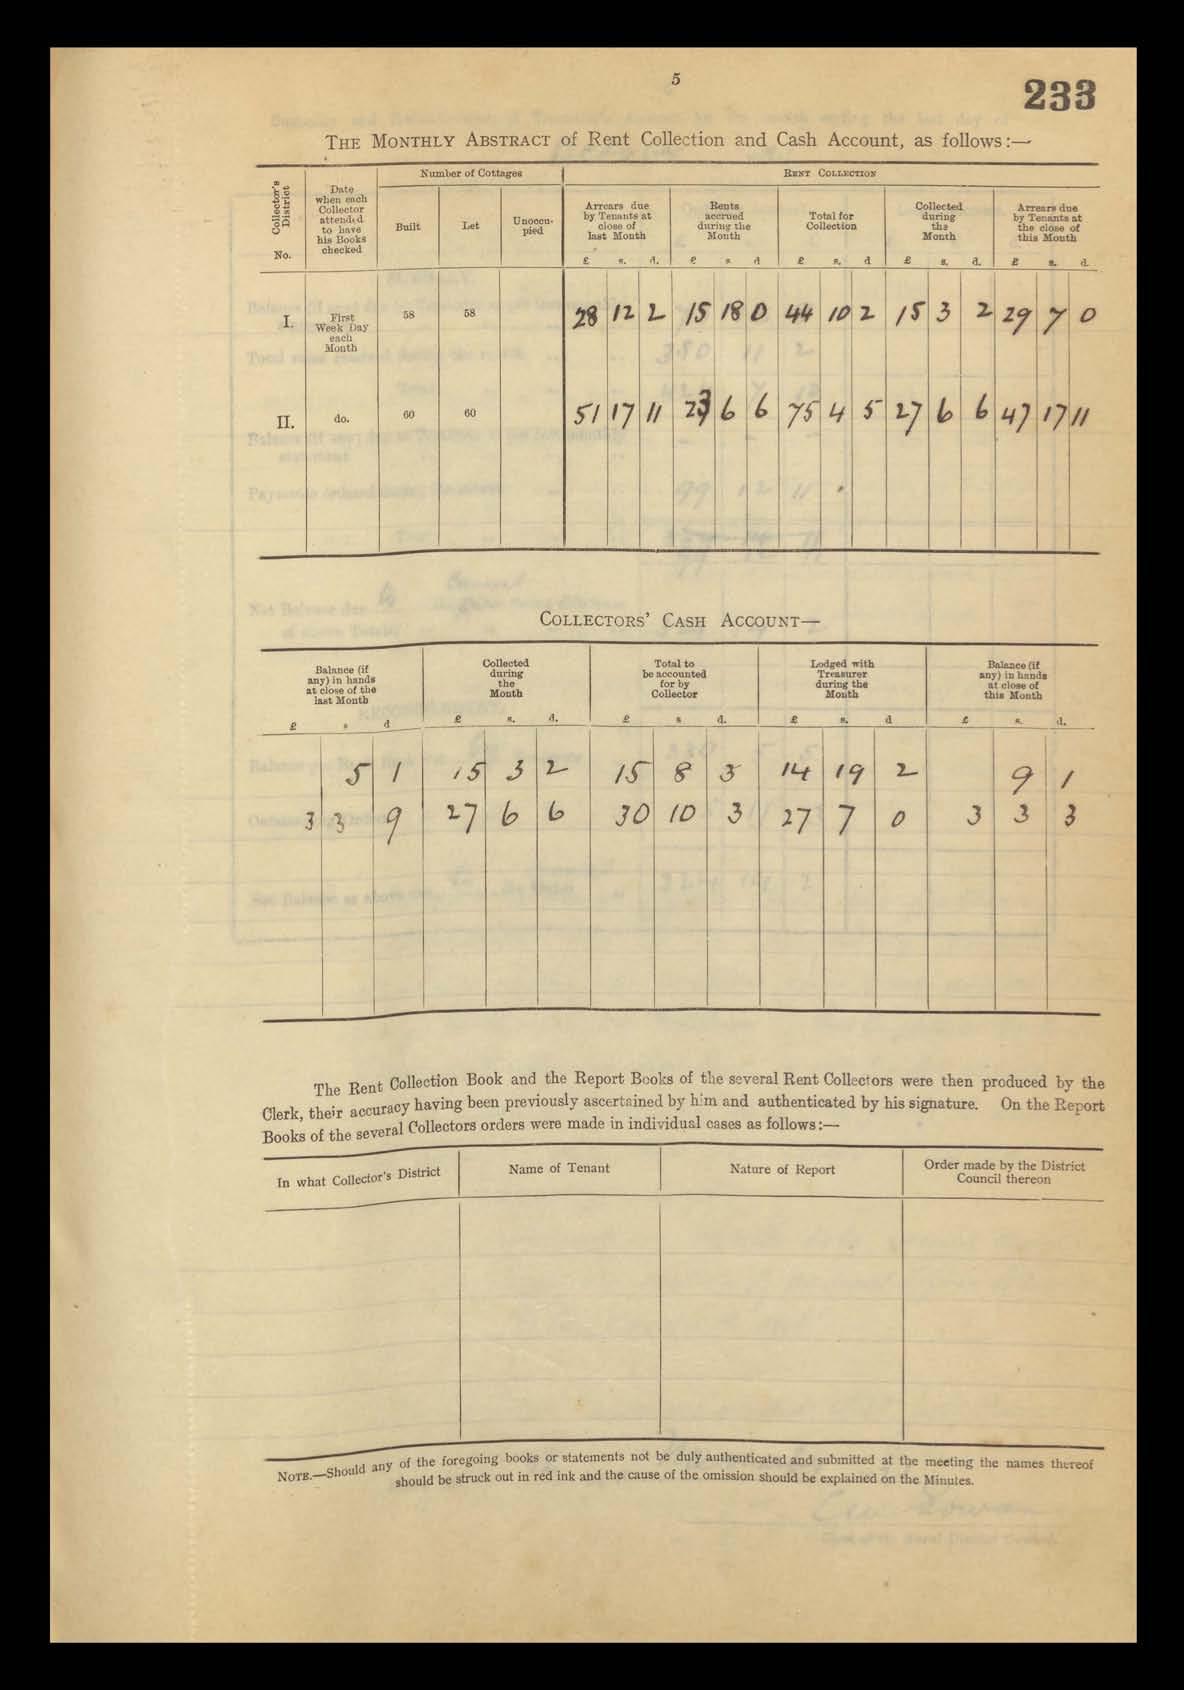 5
233
THE MONTHLY ABSTRACT of Rent Collection and Cash Account, as follows:—
Collector's District No.
Date when each Collector attended to have his Books checked
Number of Cottages
Built
Let
Unoccu-pied
RENT COLLECTION
Arrears due by Tenants at close of last Month
Rents accrued during the Month
Total for Collection
Collected during the Month
Arrears due by Tenants at the close of this Month
£ s. d. £ s d £ s. d £ s. d. £ s. d.
I. First Week Day each Month 58 58 28 12 2 15 18 0 44 10 2 15 3 2 29 7 0
II. do. 60 60 51 17 11 23 6 6 75 4 5 27 6 6 47 17 11
COLLECTORS' CASH ACCOUNT—
Balance (if any) in hands at close of the last Month
Collected during the Month
Total to be accounted for by Collector
Lodged with Treasurer during the Month
Balance (if any) in hands at close of this Month
£ s d £ s. d. £ s d. £ s. d £ s. d.
5 1 15 3 2 15 8 3 14 19 2 9 1
3 3 9 27 6 6 30 10 3 27 7 0 3 3 3
The Rent Collection Book and the Report Books of the several Rent Collectors were then produced by the
Clerk, their accuracy having been previously ascertained by him and authenticated by his signature. On the Report
Books of the several Collectors orders were made in individual cases as follows:—
In what Collector's District
Name of Tenant
Nature of Report
Order made by the District Council thereon
NOTE.—Should any of the foregoing books or statements not be duly authenticated and submitted at the meeting the names thereof
should be struck out in red ink and the cause of the omission should be explained on the Minutes.